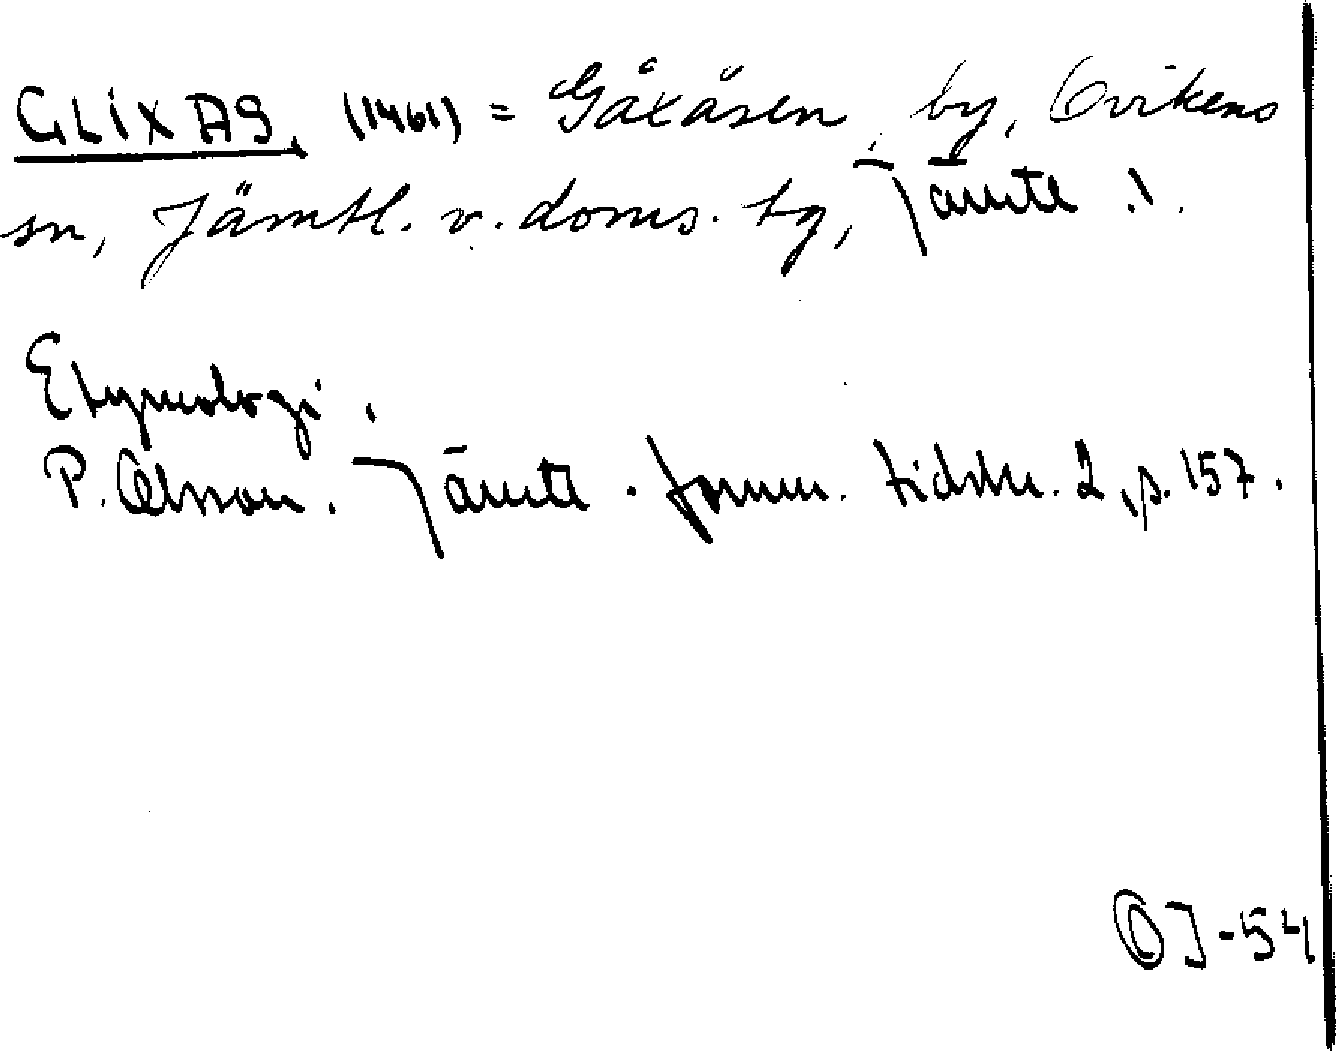 GLIXAS. (1461) = Gåxåsen, by, Ovikens
sn, Jämtl. v. doms. tg, Jämtl. l.
Etymologi.
P. Olsson. Jämtl. fornm. tidskr. 2, p. 157.
OJ-54